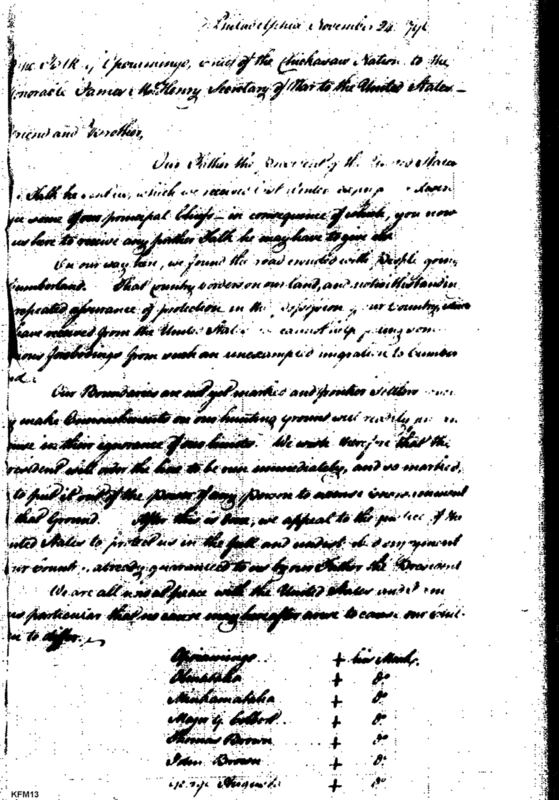 Philadelphia November 24 1796
The Talk of Opoiamingo, chief of the Chickasaw Nation to the
Honorable James McHenry Secretary of War to the United States —
Friend and Brother,
Our Father the President of the United States
Talk he sent us, which we received last winter
some of our principal Chiefs — in consequence of which, you now
us here to receive any further Talk he may have to give us.
On our way here, we found the road crowded with people going
Cumberland. That Country borders on our land, and notwithstanding
repeated assurance of protection in the possession of our Country,
have received from the United States we cannot help
forebodings from such an unexampled migration to Cumber
land.
Our Boundaries are not yet marked and frontier settlers
make Encroachments on our hunting ground will readily
in their ignorance of our limits. We wish therefore that the
President will order the line to be run immediately, and so marked,
to put it out of the power of any person to
that Ground. After this is done, we appeal to the justice of the
United States to protect us in the full and undisturbed enjoyment
our country already guaranteed to us by our Father the President
We are all now at peace with the United States and I
particular that no cause may hereafter arise to cause our
to differ.
Opoiamingo + his Mark
+ do
+ do
Major G Colbert + do
Thomas Brown + do
John Brown + do
George August + do
KFM13